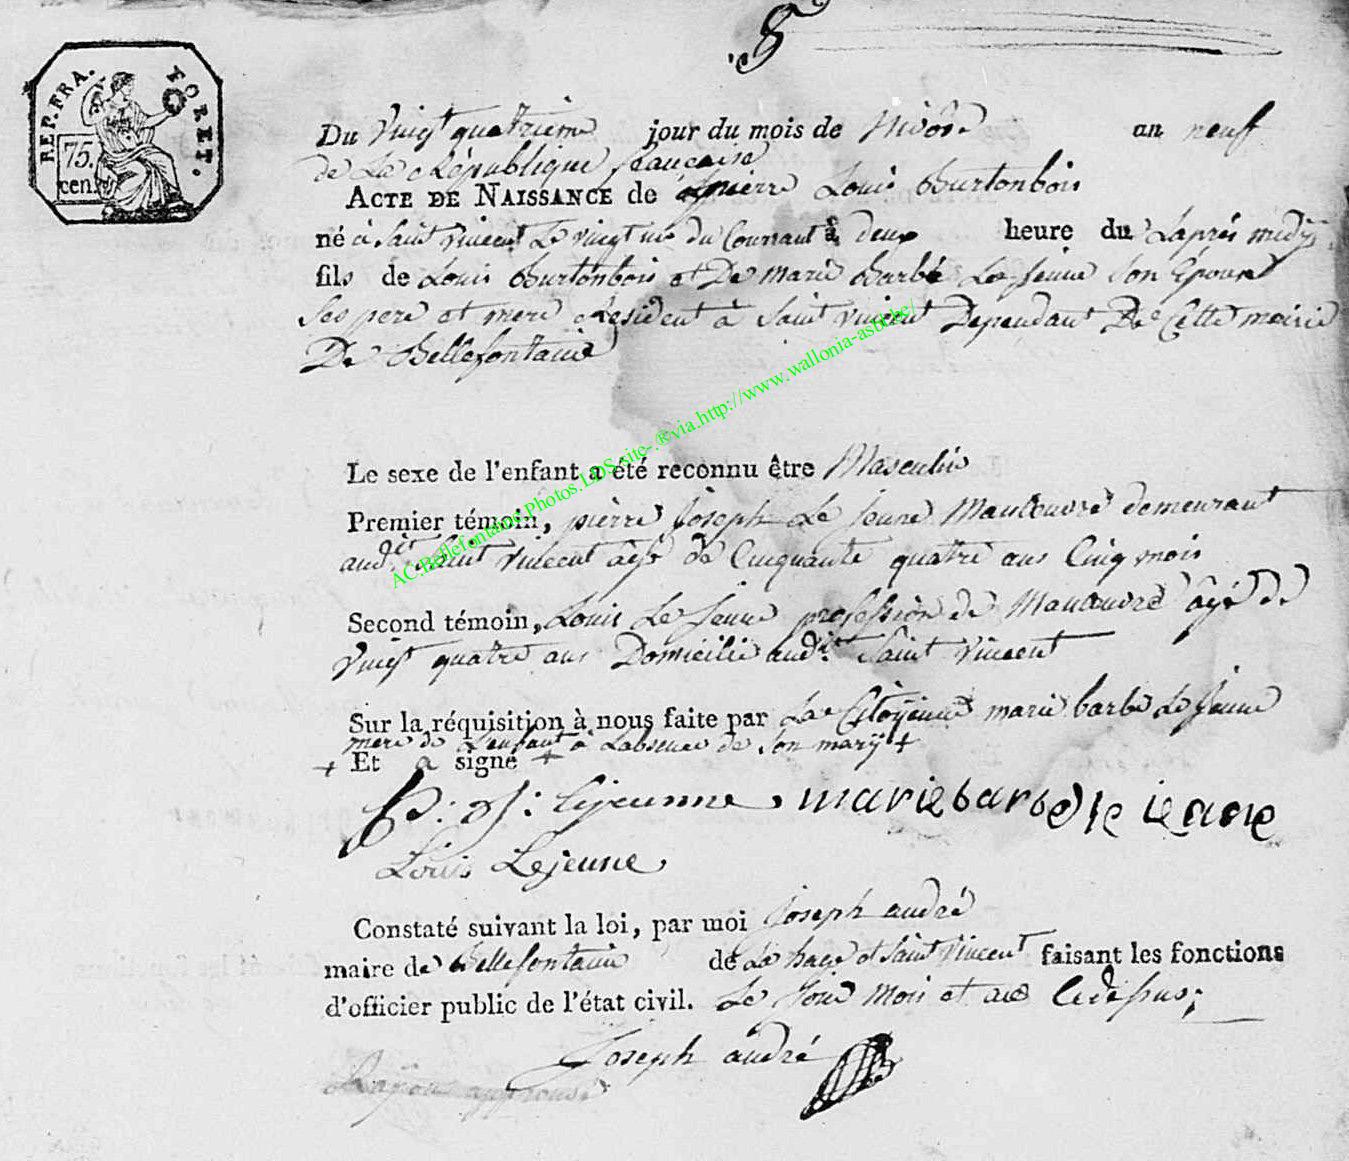 5
REP. FRA. FORET.
75.
cen.
Du vingt quatrieme jour du mois de Nivose an neuf
de La République francaise
ACTE DE NAISSANCE de pierre Louis Burtonbois
né a Saint Vincent Le vingt un du Courrant à deux heure du Laprés midÿ
fils de Louis Burtonbois et De marie Barbe Le Jeune Son Epouse
Ses pere et mere Resident à Saint vincent Dependant De Cette mairie
De Bellefontaine
Le sexe de l'enfant a été reconnu être Masculin
Premier témoin, pierre Joseph Le Jeune Manoeuvre demeurant
audit Saint Vincent agé de Cinquante quatre ans Cinq mois
Second témoin, Louis Le Jeune profession de Manoeuvre âgé de
Vingt quatre ans Domicilié audit Saint Vincent
Sur la réquisition à nous faite par La Citoyenne marie barbe Le Jeune
mere de L'enfant a Labsence de Son marÿ +
+ Et a signé +
P: J: Lejeunne marie barbe le ieune
Louis Lejeune
Constaté suivant la loi, par moi Joseph andré
maire de Bellefontaine de La hage et Saint Vincent faisant les fonctions
d'officier public de l'état civil. Le Jour Mois et an
Joseph andré
approuvé
AC.Bellefontaine.Photos.LDS.site-.®via.http://www.wallonia-asbl.be/